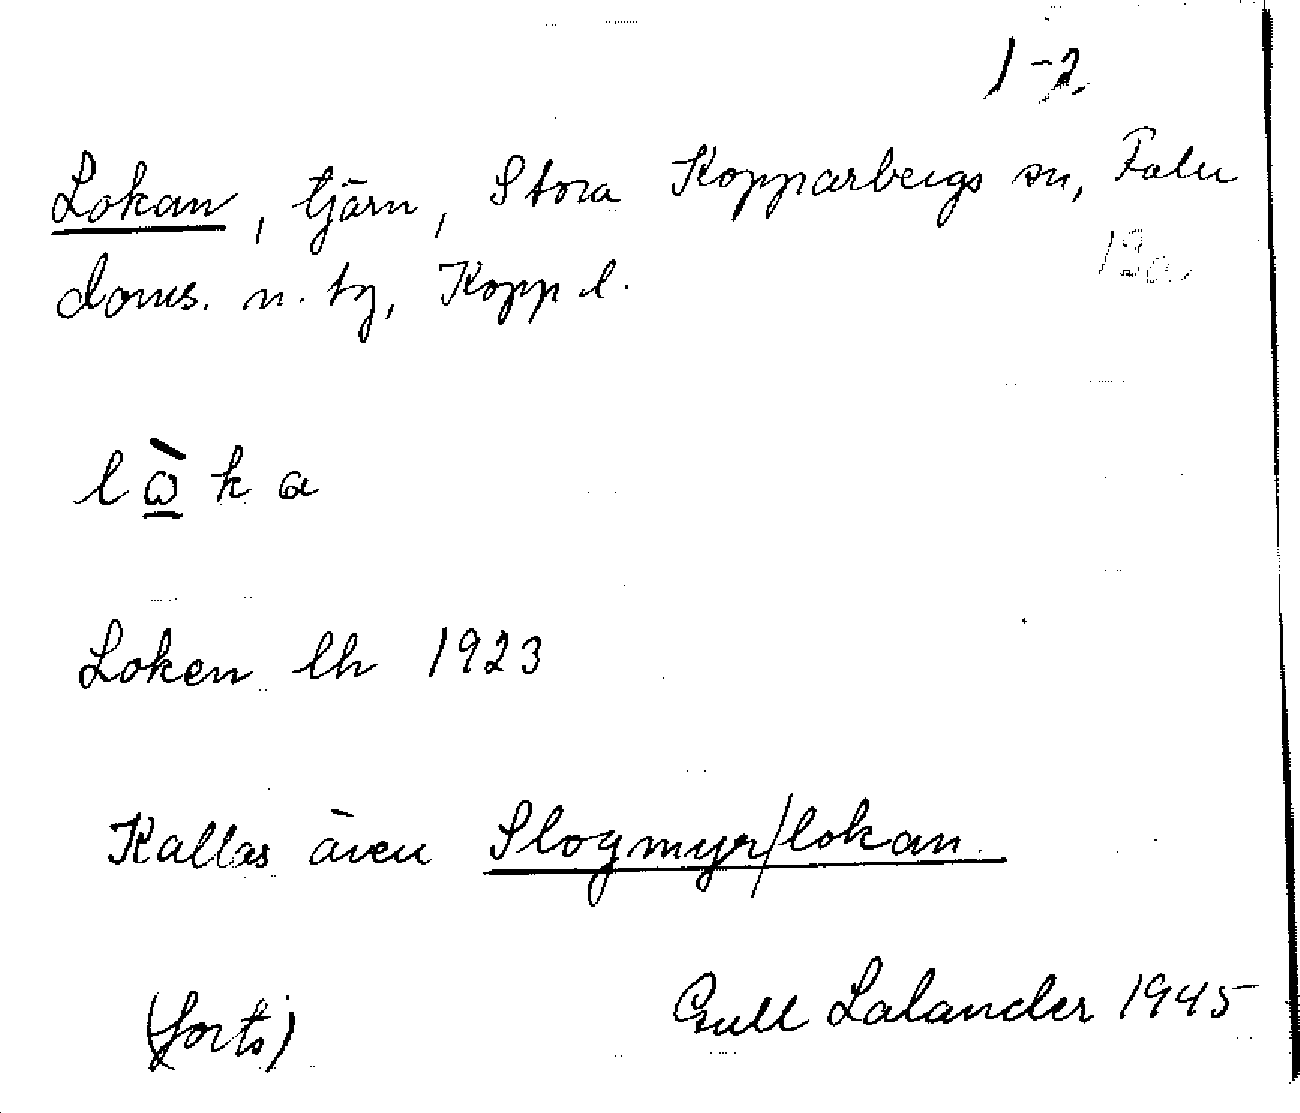 1-2.
Lokan, tjärn, Stora Kopparbergs sn, Falu
12a
doms. n. tg, Kopp l.
l ὼ k a
Loken lh 1923
Kallas även Slogmyr/lokan
(forts) Gull Lalander 1945